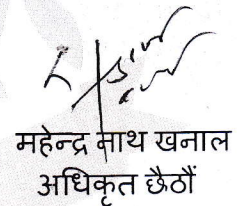 महेन्द्र नाथ खनाल
अधिकृत छैठौं